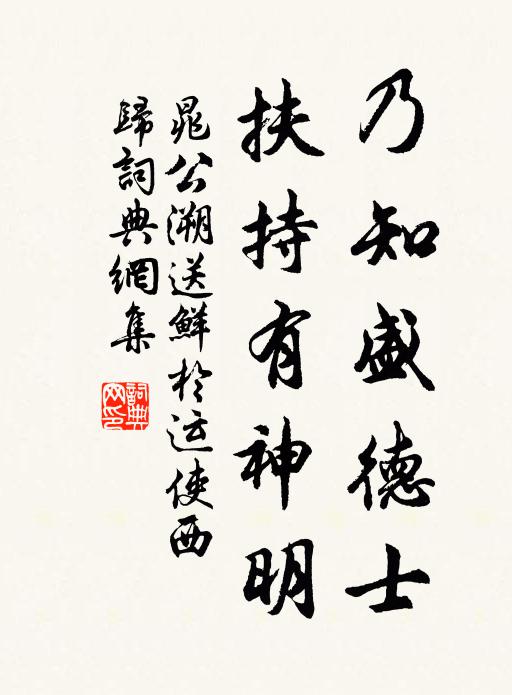 乃知盛德士
扶持有神明
晁公溯送鮮於运使西
歸詞典網集
詞典
网印